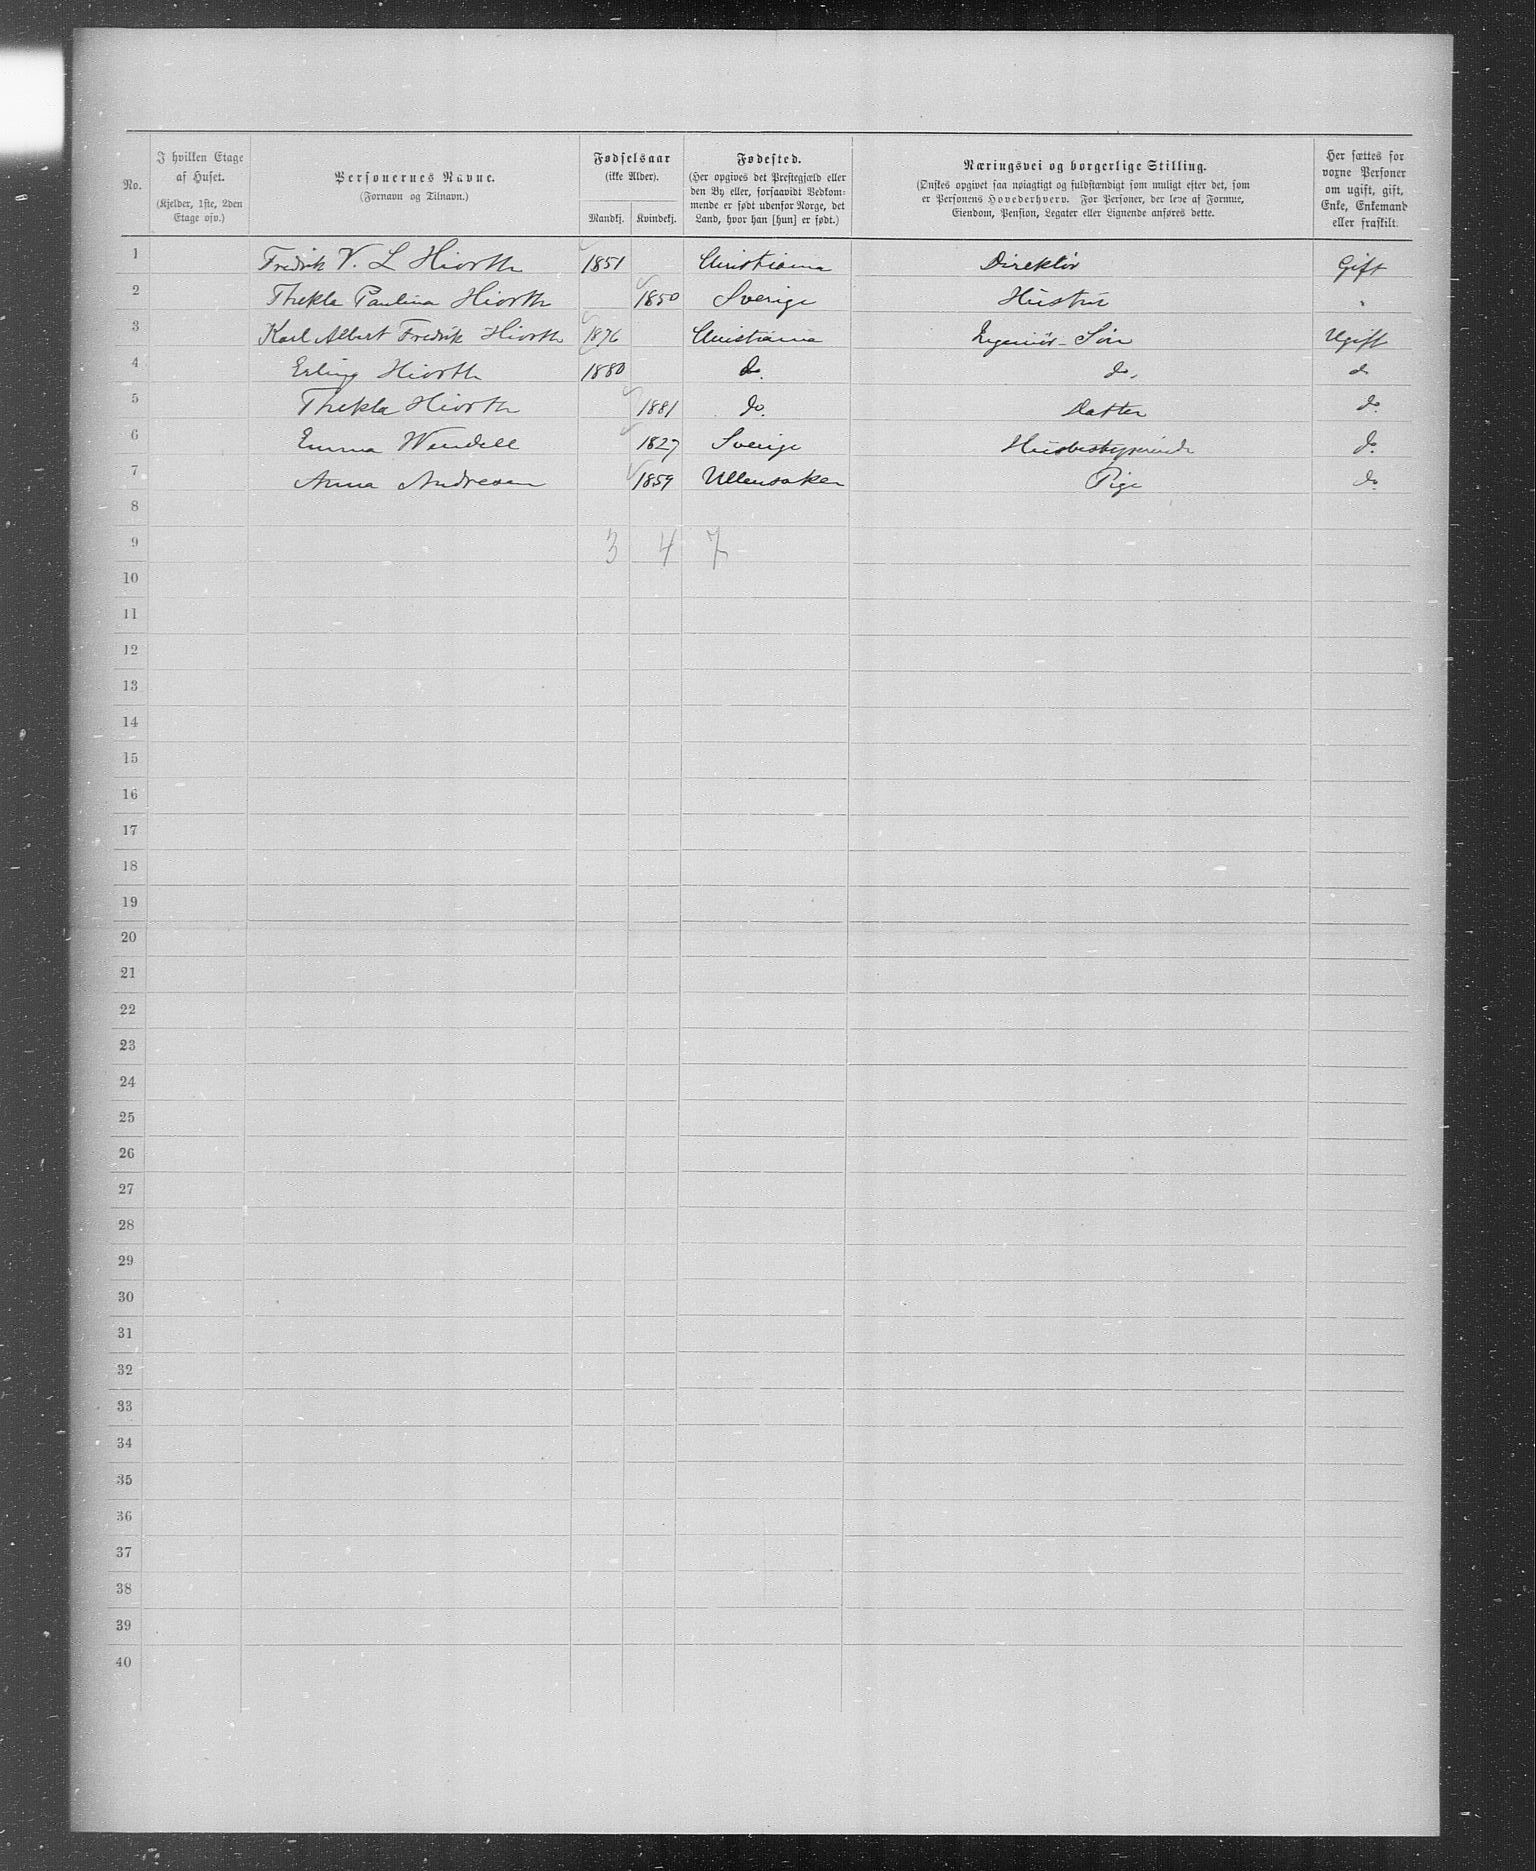 No.
I hvilken Etage
af Huset.
(Kjelder, 1ste, 2den
Etage osv.)
Personernes Navne.
(Fornavn og Tilnavn.)
Fødselsaar
(ikke Alder).
Mandkj. Kvindekj.
Fødested.
(Her opgives det Prestegjæld eller
den By eller, forsaavidt Vedkom-
mende er født udenfor Norge, det
Land, hvor han [hun] er født.)
Næringsvei og borgerlige Stilling.
(Ønskes opgivet saa nøiagtigt og fuldstændigt som muligt efter det, som
er Personens Hovederhverv. For Personer, der leve af Formue,
Eiendom, Pension, Legater eller Lignende anføres dette.
Her sættes for
voxne Personer
om ugift, gift,
Enke, Enkemand
eller fraskilt.
1 Fredrik V. L Hiorth 1851 Christiania Direktör Gift
2 Thekla Paulina Hiorth 1850 Sverige Hustru "
3 Karl Albert Fredrik Hiorth 1876 Christiania Ingeniör - Sön Ugift
4 Erling Hiorth 1880 do. do. do
5 Thekla Hiorth 1881 do. Datter do.
6 Emma Wendell 1827 Sverige Husbestyrerinde do.
7 Anna Andresen 1859 Ullensaker Pige do.
8
9 3 4 7
10
11
12
13
14
15
16
17
18
19
20
21
22
23
24
25
26
27
28
29
30
31
32
33
34
35
36
37
38
39
40